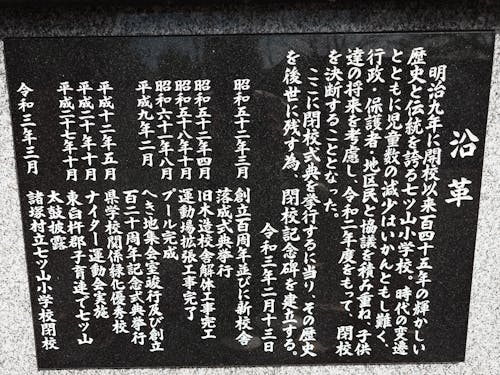 沿革
明治九年に開校以来百四十五年の輝かしい
歴史と伝統を誇る七ツ山小学校。時代の変遷
とともに児童数の減少はいかんともし難く、
行政・保護者・地区民と協議を積み重ね、子供
達の将来を考慮し、令和二年度をもって、閉校
を決断することとなった。
ここに閉校式典を挙行するに当り、その歴史
を後世に残す為、閉校記念碑を建立する。
令和三年二月十三日
昭和五十二年三月 創立百周年並びに新校舎
落成式典挙行
昭和五十二年四月 旧木造校舎解体工事完工
昭和五十八年十月 運動場拡張工事完了
昭和六十一年八月 プール完成
平成九年二月 へき地集会室竣行及び創立
百二十周年記念式典挙行
平成十二年五月 県学校関係緑化優秀校
平成二十年十月 ナイター運動会実施
平成二十七年十月 東臼杵郡子育連で七ツ山
太鼓披露
令和三年三月 諸塚村立七ツ山小学校閉校